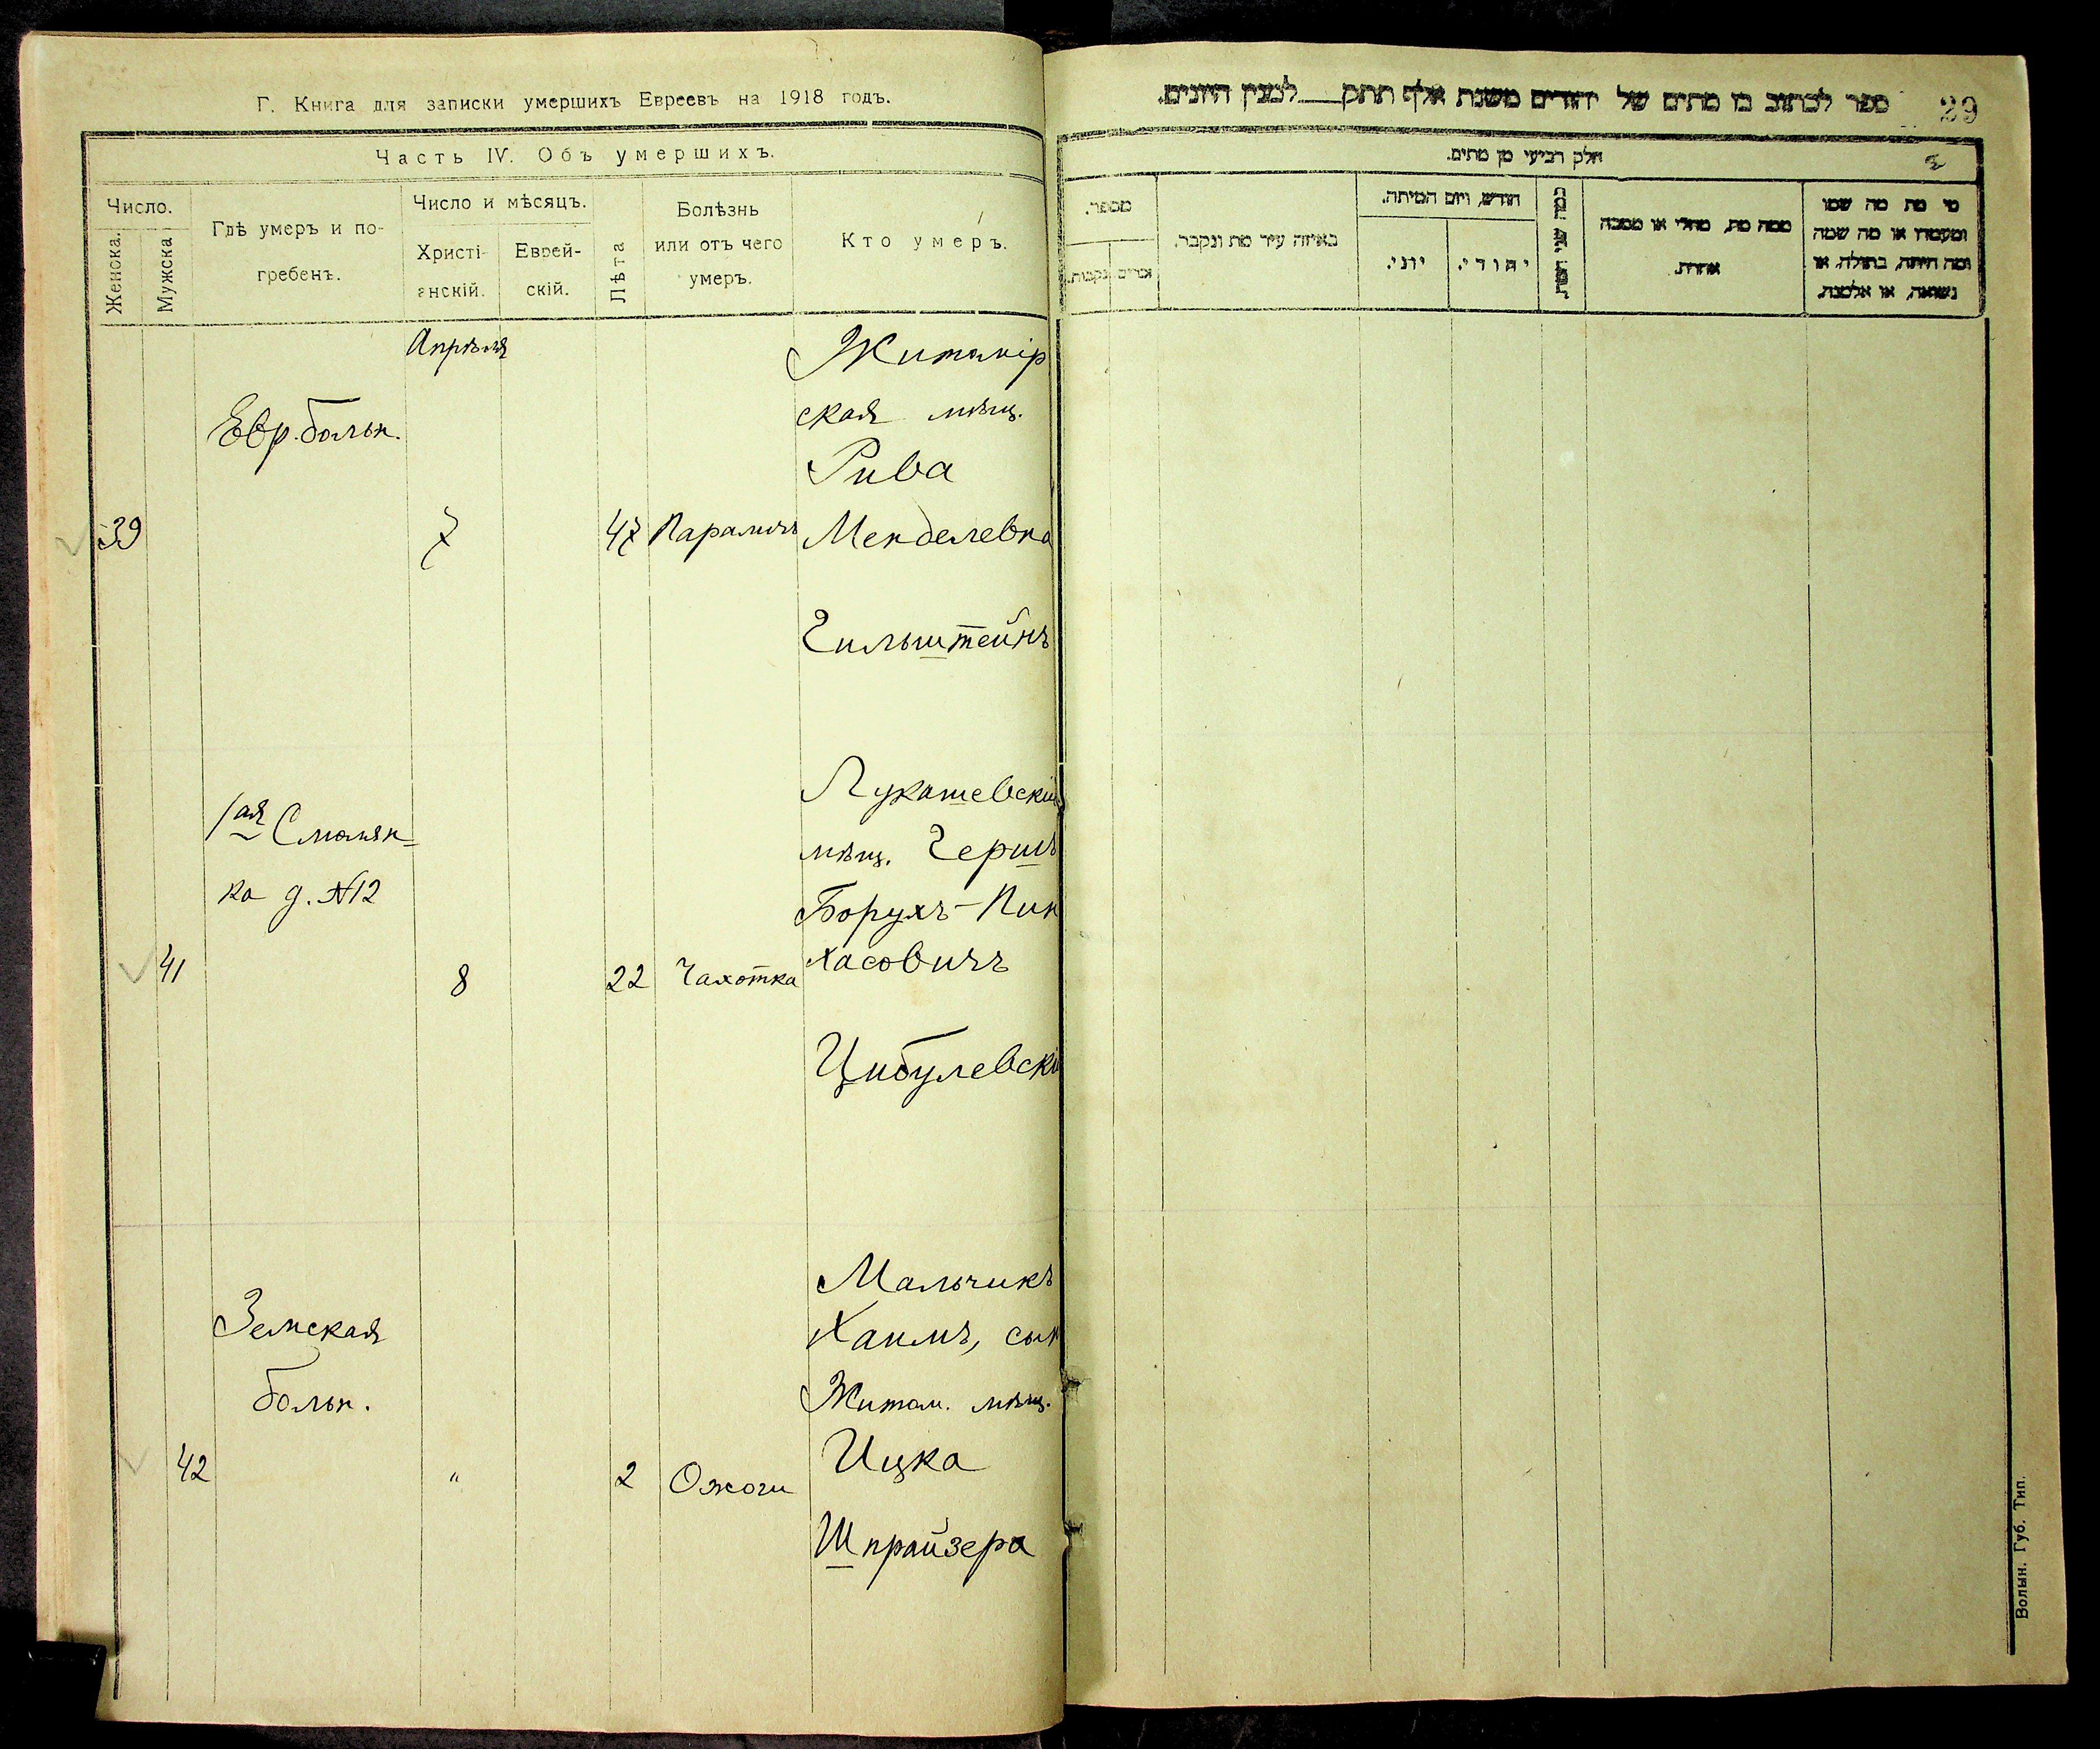 Г. Книга для записки умершихъ Евреевъ на 1918 годъ.
Часть IV. Объ умершихъ.
Число.
Женска.
Мужска
Гдѣ умеръ и по-
гребенъ.
Число и мѣсяцъ.
Христі-
анскій.
Еврей-
скій.
Лѣта
Болѣзнь
или отъ чего
умеръ.
Кто умеръ.
Апрѣля
39
Евр. больн.
7
47
Параличъ
Житомір
ская мѣщ.
Рива
Менделевна
Гильштейнъ
41
1ая Смолян-
ка д. №12
8
22
Чахотка
Лукашевскій
мѣщ. Гершъ
Борухъ-Пин
хасовичъ
Цибулевскі
42
Земская
больн.
"
2
Ожоги
Мальчикъ
Хаимъ, сын
Житом. мѣщ.
Ицка
Шпрайзера
ספר לכתוב בו מתים של יהודים משנת אלף תתק___ למנין היונים.
29
חלק רביעי מן מתים.
מי מת מה שמו
ומעמדו או מה שמה
ומה היתה, בתולה, או
נשואה, או אלמנה.
ממה מת, מחלי או מסבה
אחרת.
חודש, ויום המיתה.
יהודי.
יוני.
באיזה עיר מת ונקבר.
מספר.
זכרים
נקבות.
Волын. Губ. Тип.